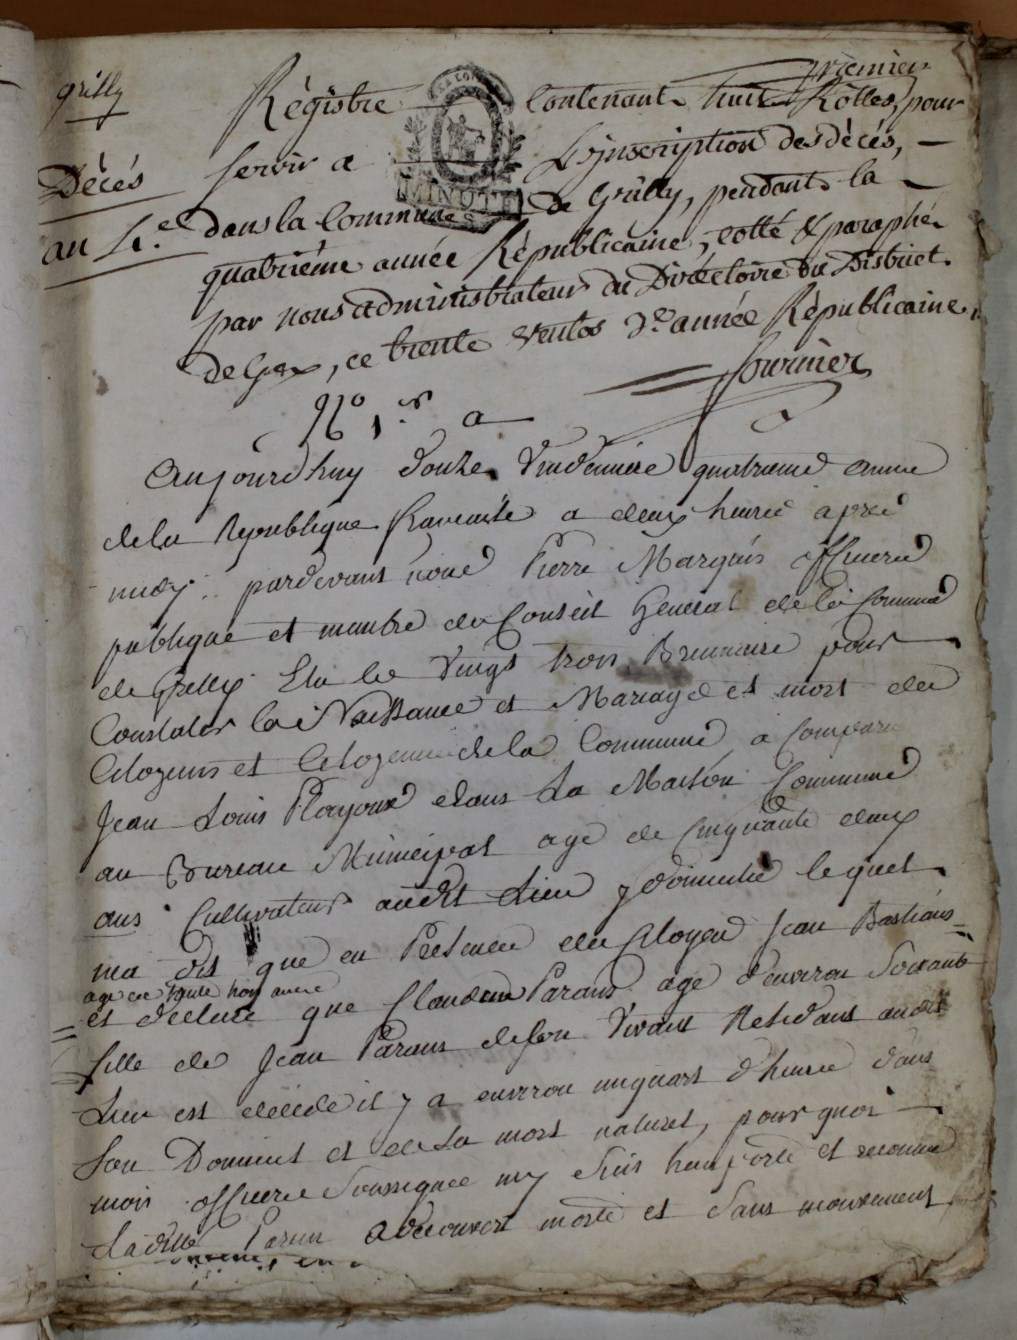 Premier
Grilly
Régistre Contenant huit Rôlles, pour
Décés
servir a L'jnscription des décés,
MINUTE
au 4.e
dans la Commune de Grilly, pendant la
quatriéme année Républicaine, cotté & paraphé
par nous administrateur du Directoire du District
de Gex, ce trente Ventos 3e année Républicaine.
fournier
No 1.er a
Aujourdhuy douze Vindemiere quatrieme annee
de la Republique francaise a deux heures apré
midy pardevant nous Pierre Marquis officiere
publique et manbre du Conseil General de la Commune
de Grelly Elu le Vingt trois Brumaire pour
Constater la Naissance et Mariage et mort des
Citoyens et Citoyenne de la Commune, a Comparu
Jean Louis dans La Maison Commune
au Bureau Municipal age de Cinquante deux
ans Cultivateur audit Lieu y domicilie lequel
ma dit que en Presence du Citoyen Jean Bastians
age de trente troy annee
et declare que Claudine Parans age d'environ Soixante
fille de Jean Parans de son Vivant Residans audit
Lieu est decede il y a environ unquart d'heure dans
Son Domicil et de Sa mort naturel, pour quoi
moi officiere Soussignee my Suis transporte et reconnu
Ladite Paran a decouvert morte et Sans mouvement